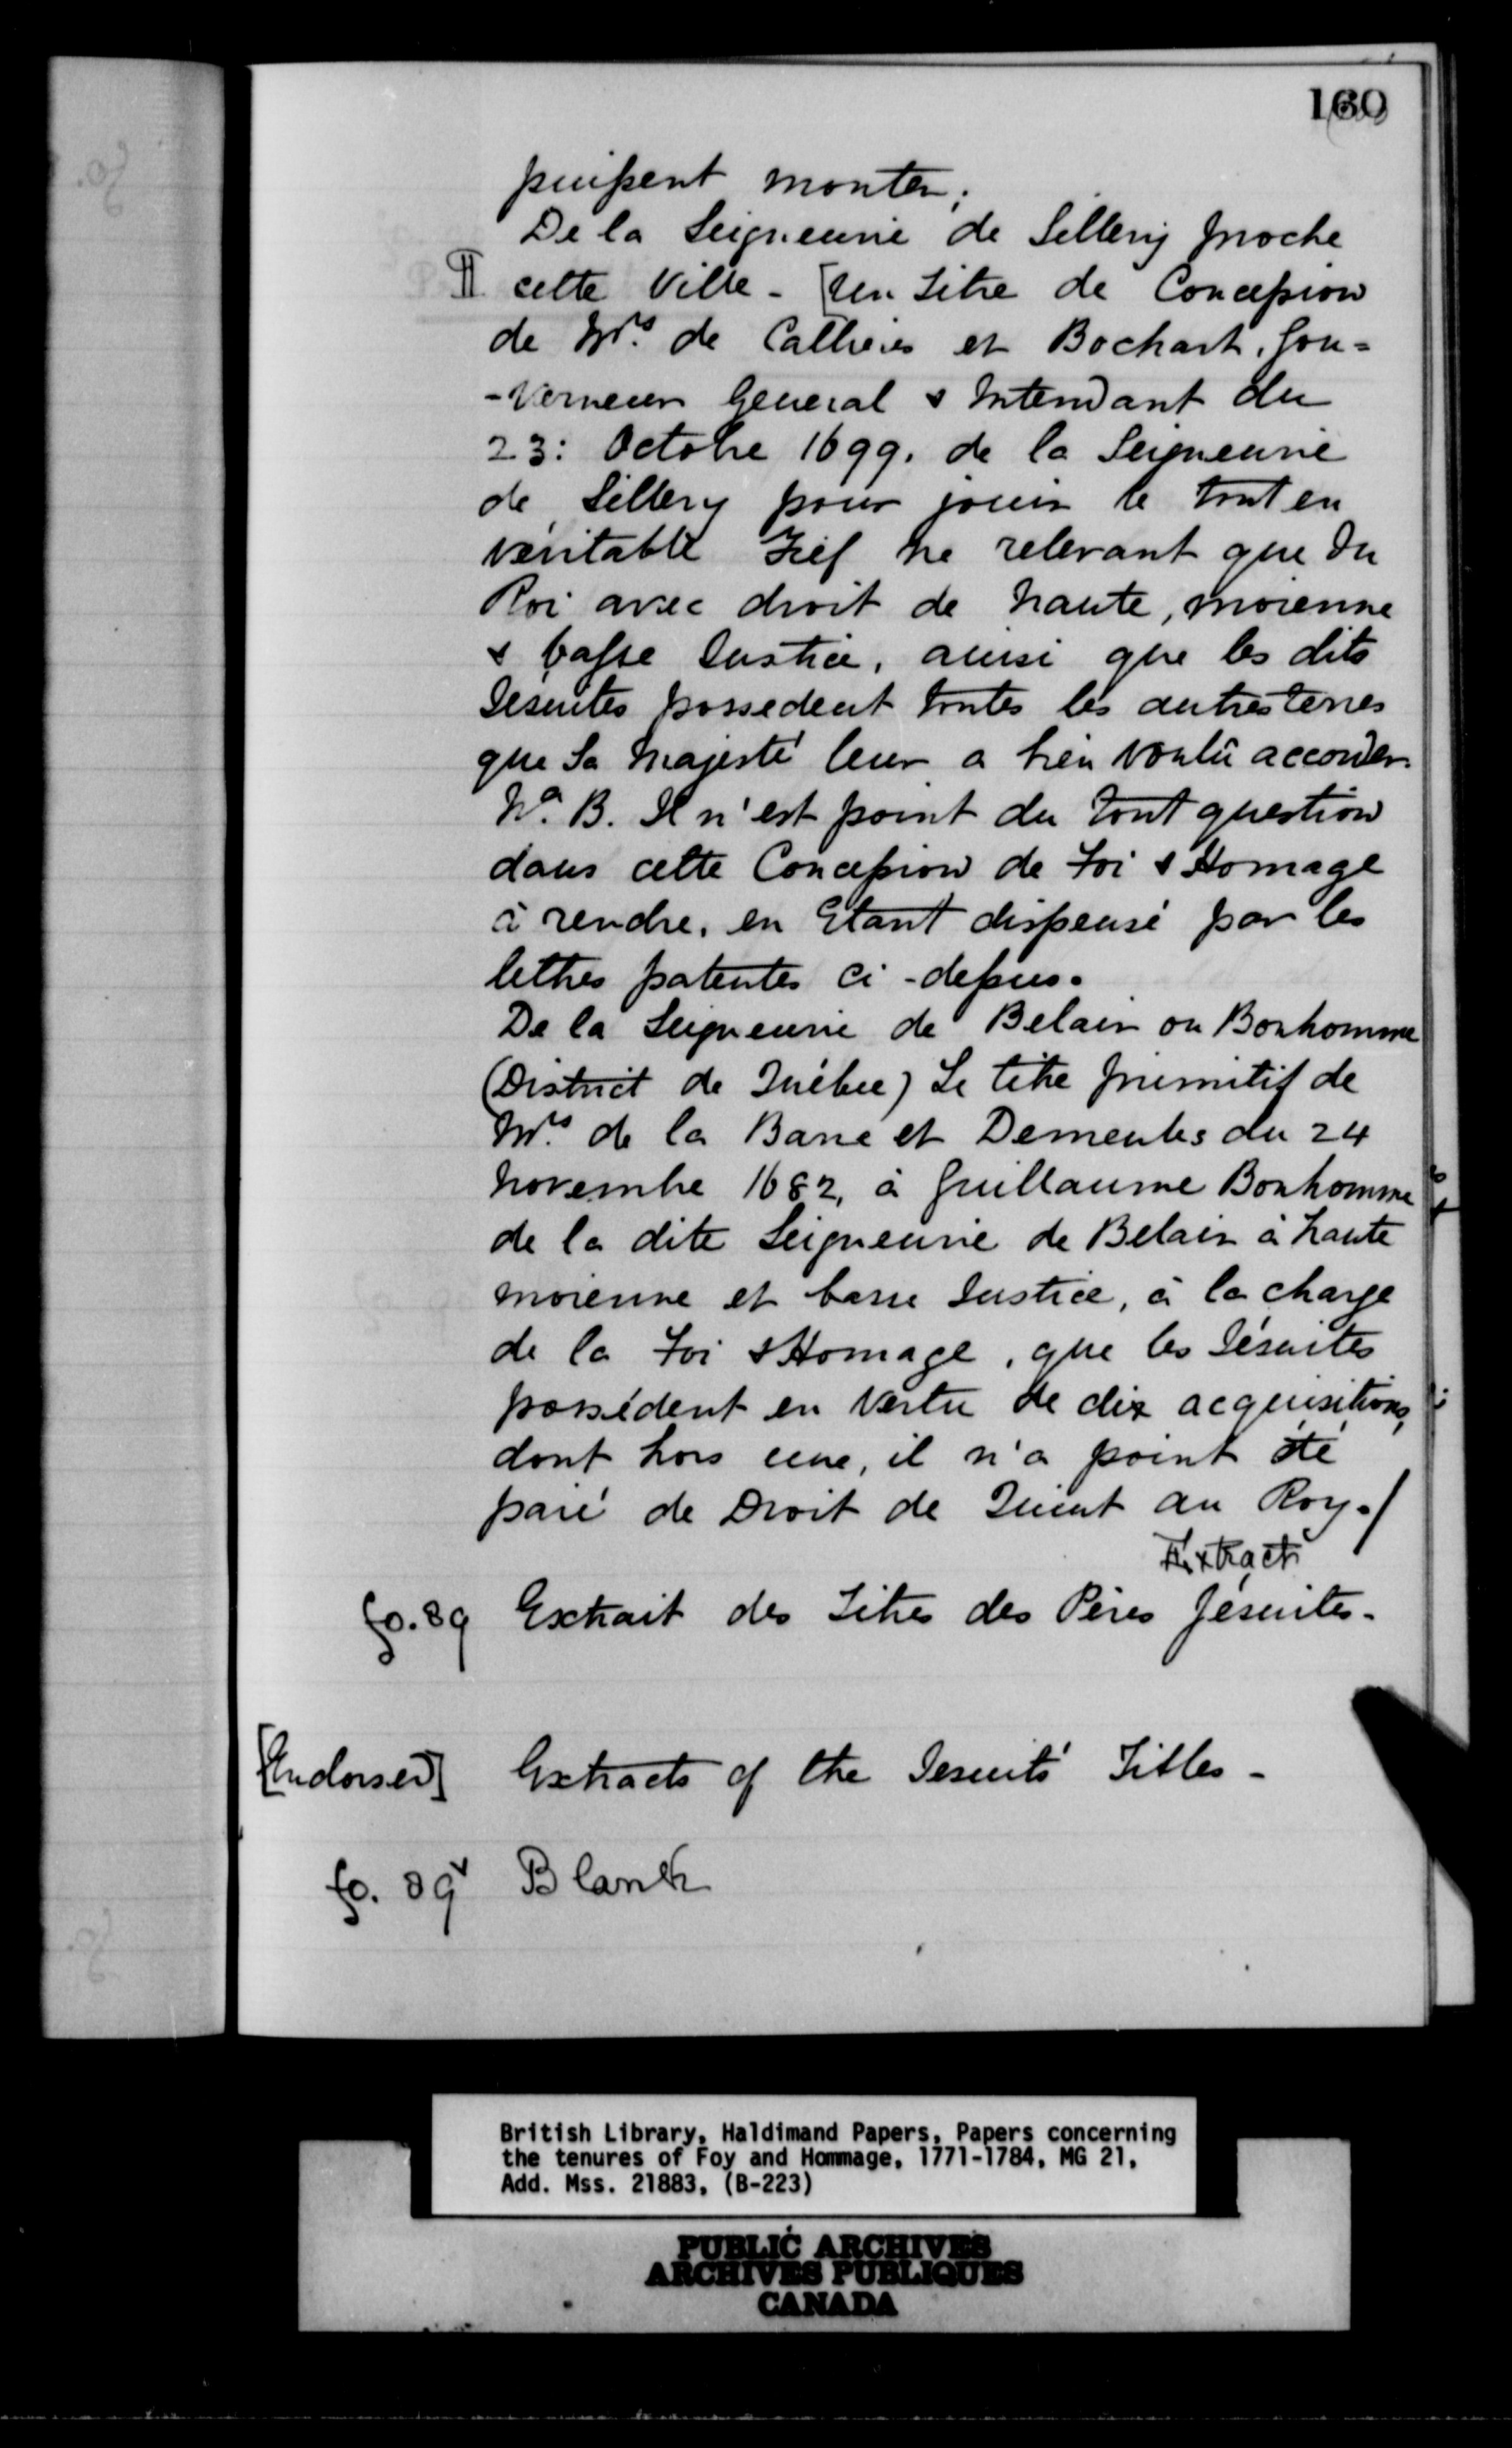 160
puissent monter;
De la Seigneurie de Sillery proche
¶ cette Ville - [Un Titre de Concession
de Mrs. de Callieres et Bochart, Gou-
-verneur General & Intendant du
23: Octobre 1699. de la Seigneurie
de Sillery pour jouir le tout en
véritable Fief ne relevant que du
Roi avec droit de haute, moienne
& basse Justice, ainsi que les dits
Jesuites possedent toutes les autres terres
que Sa Majesté leur a bien voulû accorder.
Na. B. Il n'est point du tout question
dans cette Concession de Foi & Homage
à rendre, en Etant dispensé par les
lettres patentes ci-dessus.
De la Seigneurie de Belair ou Bonhomme
(District de Québec) Le titre primitif de
Mrs. de la Barre et Demeules du 24
Novembre 1682, à Guillaume Bonhomme
de la dite Seigneurie de Belair à haute
moienne et basse Justice, à la charge
de la Foi & Homage, que les Jésuites
possédent en Vertu de dix acquisitions,
dont hors une, il n'a point été
paié de Droit de Quint au Roy./
Extract
fo. 89 Extrait des Titres des Péres Jésuites-
[Endorsed] Extracts of the Jesuits' Titles-
fo. 89v Blank
British Library, Haldimand Papers, Papers concerning
the tenures of Foy and Hommage, 1771-1784, MG 21,
Add. Mss. 21883, (B-223)
PUBLIC ARCHIVES
ARCHIVES PUBLIQUES
CANADA